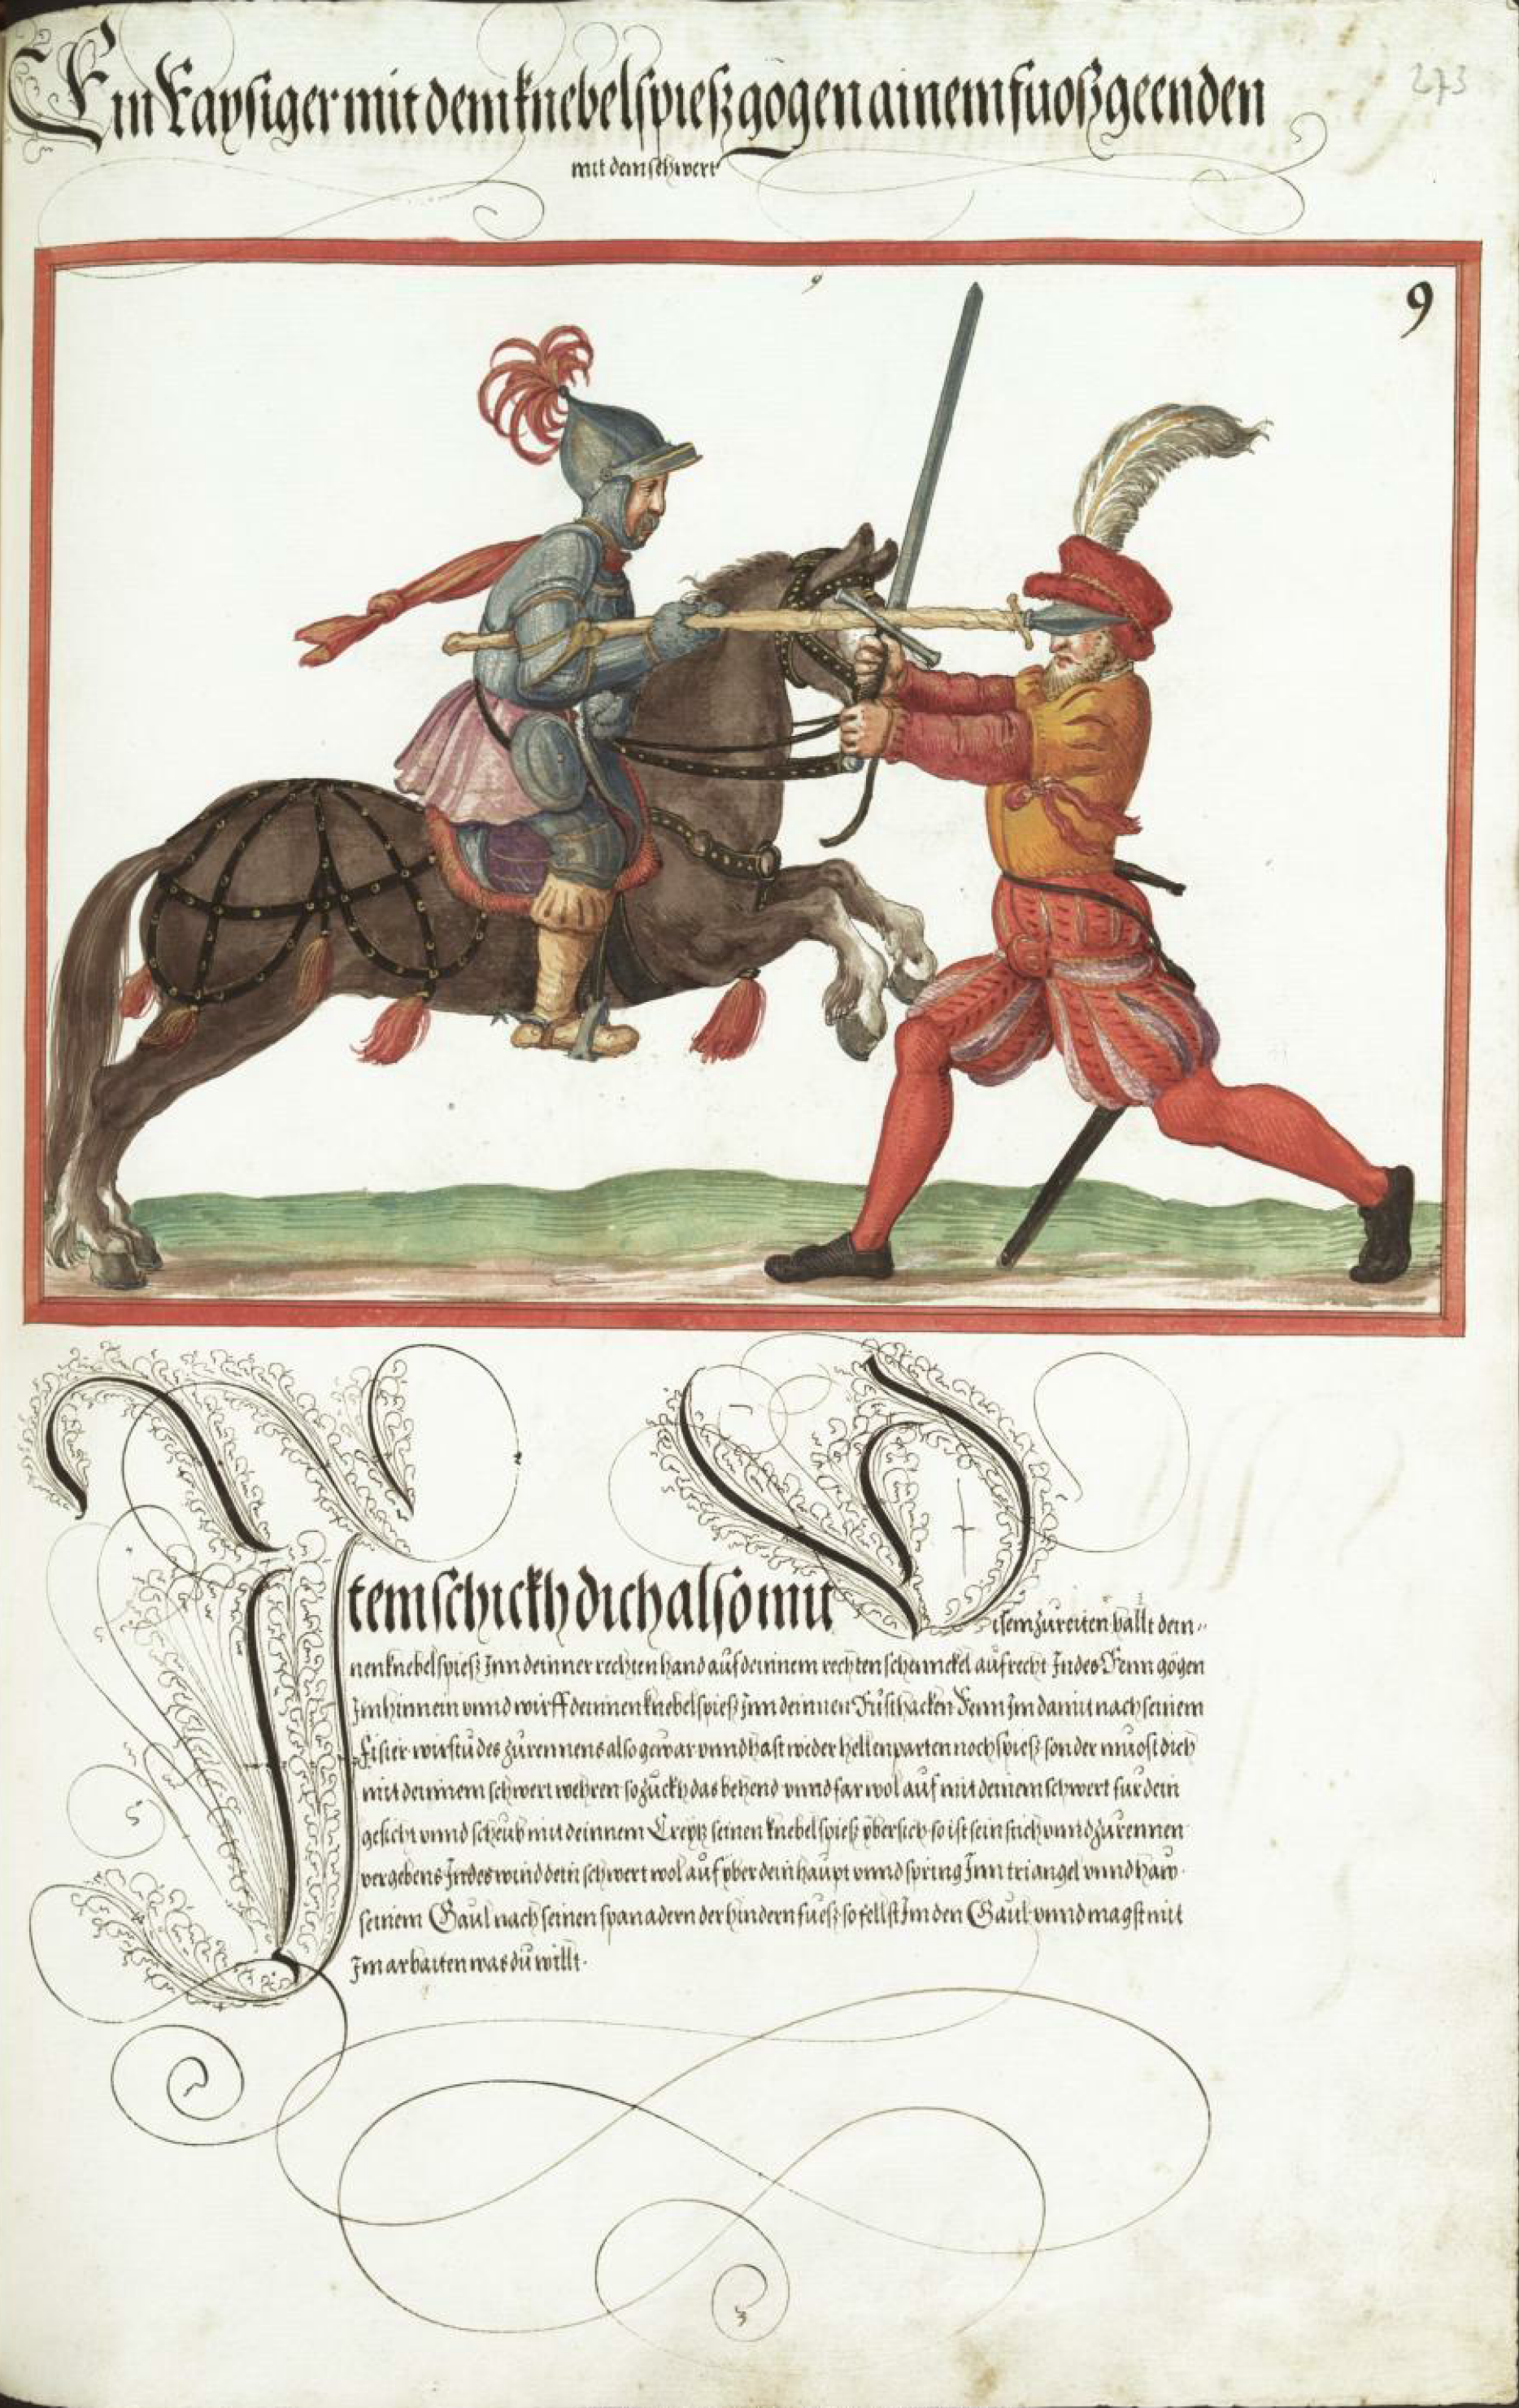 273
Ein Raysiger mit dem knebelspiesz gögen ainem fuoszgeenden
mit dem schwert
9
9
Item schickh dich also mit Disem zureiten hallt dein-
nen knebelspiesz Inn deinner rechten hand auf deinnem rechten schennckel aufrecht Indes Renn gögen
Im hinnein unnd wirff deinnen knebelspiesz Inn deinnen Rüsthacken Renn Im damit nach seinem
fisier wirstu des zurennens also gewar unnd hast weder hellenparten noch spiesz sonder muost dich
mit deinnem schwert wehren so zuckh das behend unnd far wol auf mit deinem schwert für dein
gesicht unnd scheub mit deinnem Creytz seinen knebelspiesz ybersich so ist sein stich unnd zurennen
vergebens Indes wind dein schwert wol auf yber dein haupt unnd spring Inn triangel unnd haw
seinem Gaul nach seinen spanadern der hindern fuesz so fellst Im den Gaul unnd magst mit
Im arbaiten was du willt.